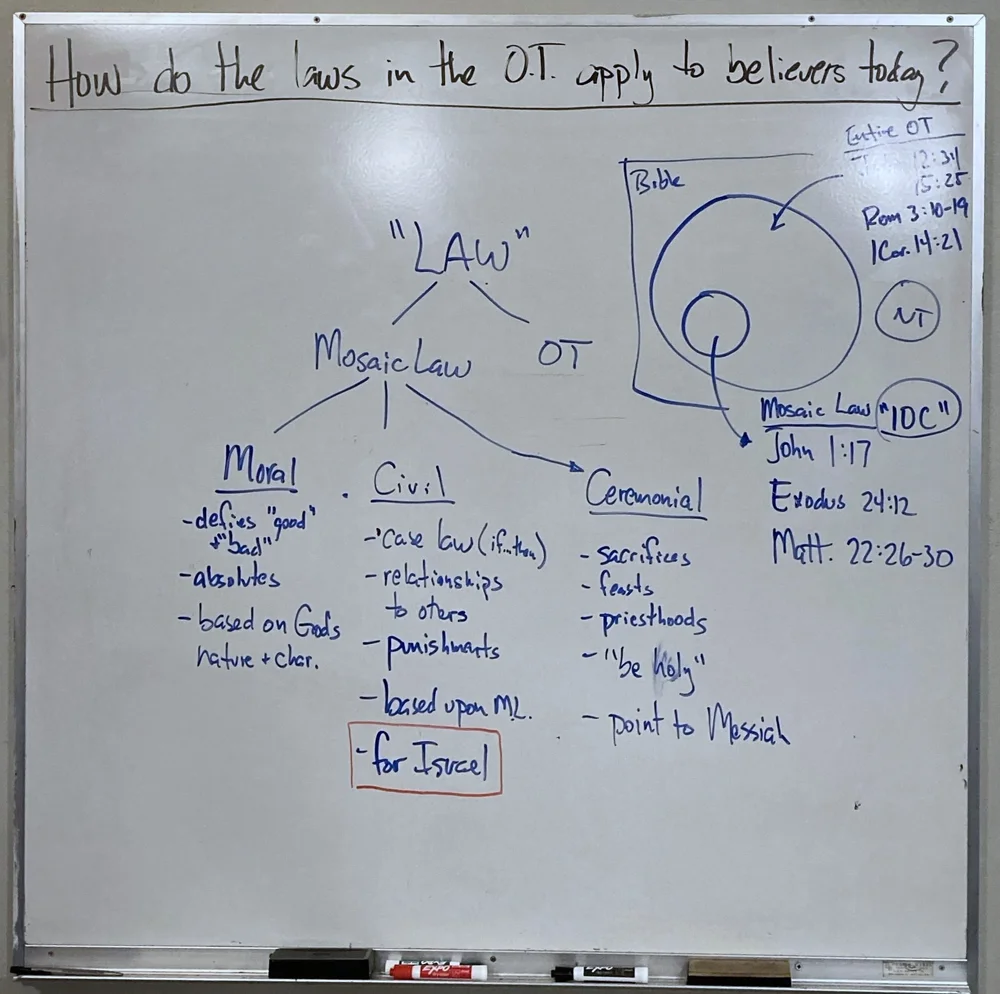 How do the laws in the O.T. apply to believers today?
Entire OT
12:34
15:25
Rom 3:10-19
1Cor. 14:21
Bible
NT
"LAW"
Mosaic Law
OT
Mosaic Law "10C"
John 1:17
Exodus 24:12
Matt. 22:26-30
Moral
-defies "good"
+"bad"
-absolutes
-based on Gods
nature + char.
Civil
-case law (if...then)
-relationships
to oters
-punishmarts
-based upon ML.
-for Israel
Ceremonial
-sacrifices
-feasts
-priesthoods
-"be holy"
-point to Messiah
EXPO
EXPO